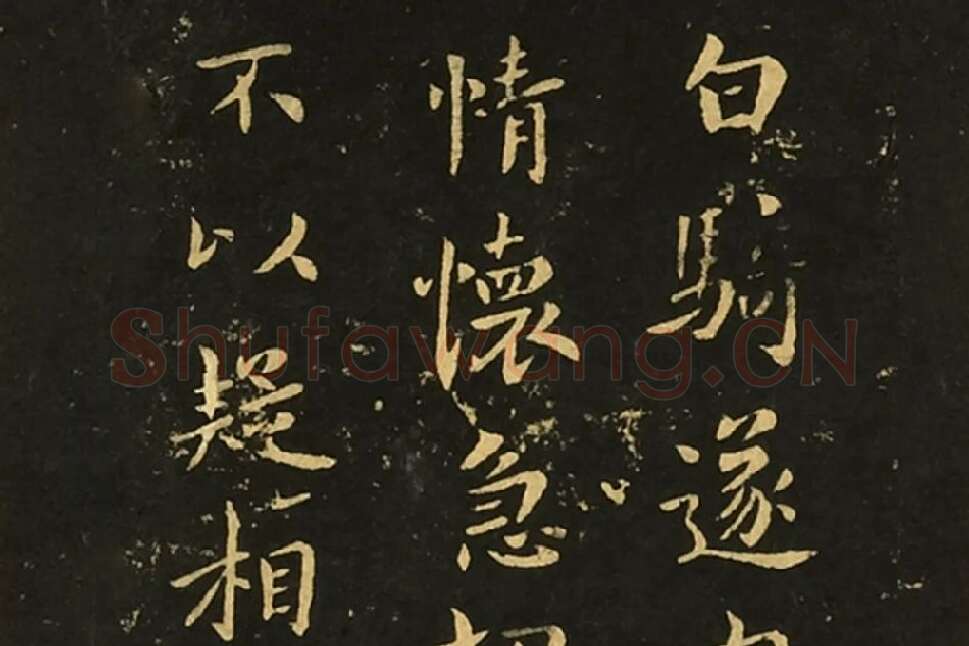 白騎遂内
情懷急切
不以疑相
Shufawang.CN